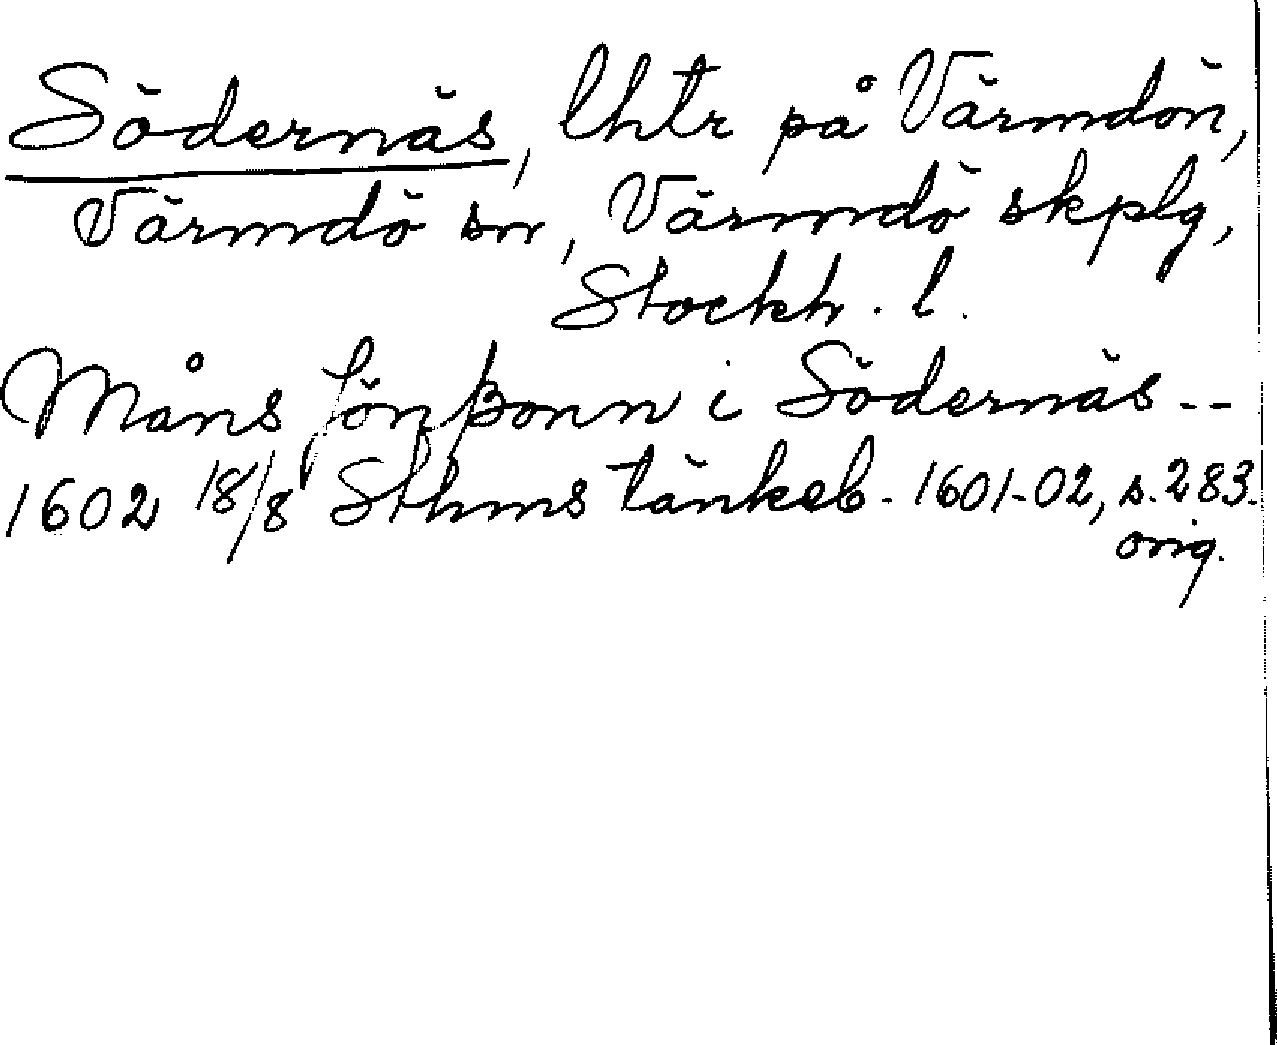 Södernäs, lhtr på Värmdön,
Värmdö sn, Värmdö skplg,
Stockh. l.
Måns Jönßonn i Södernäs--
1602 18/8 Sthms tänkeb. 1601-02, s. 283.
orig.